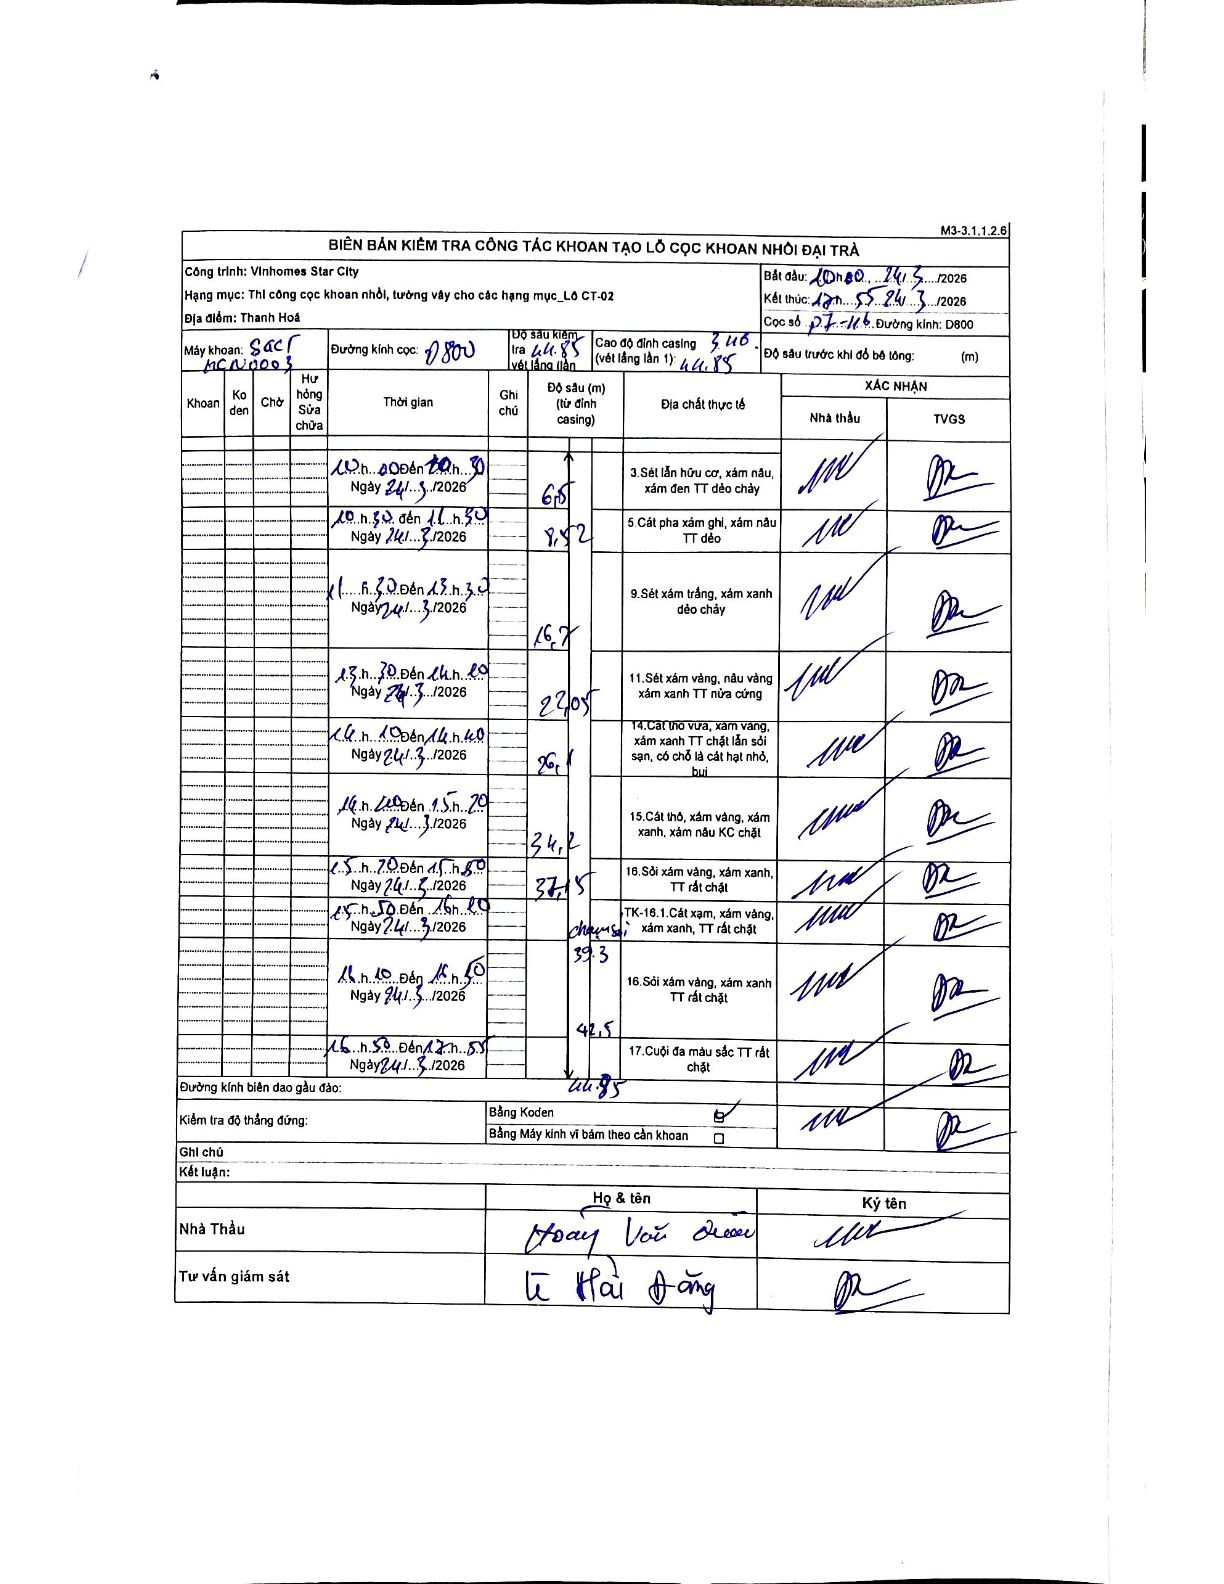 M3-3.1.1.2.6
BIÊN BẢN KIỂM TRA CÔNG TÁC KHOAN TẠO LỖ CỌC KHOAN NHỒI ĐẠI TRÀ
Công trình: Vinhomes Star City
Hạng mục: Thi công cọc khoan nhồi, tường vây cho các hạng mục_Lô CT-02
Địa điểm: Thanh Hoá
Bắt đầu: 10h00, 24/3/2026
Kết thúc: 17h 55 24/3/2026
Cọc số P7-116 Đường kính: D800
Máy khoan: SACT
MCN0003
Đường kính cọc: D800
Độ sâu kiểm
tra 44.85
vét lắng (lần
Cao độ đỉnh casing 3.46
(vét lắng lần 1): 44.85
Độ sâu trước khi đổ bê tông: (m)
Khoan
Ko
den
Chờ
Hư
hỏng
Sửa
chữa
Thời gian
Ghi
chú
Độ sâu (m)
(từ đỉnh
casing)
Địa chất thực tế
XÁC NHẬN
Nhà thầu
TVGS
10.h..00Đến 10.h..30
Ngày 24/..3../2026
6,5
3.Sét lẫn hữu cơ, xám nâu,
xám đen TT dẻo chảy
10.h.30. đến 11..h.30
Ngày 24/...3./2026
8,52
5.Cát pha xám ghi, xám nâu
TT dẻo
11.....h.30.Đến 13.h.30
Ngày 24/...3./2026
16,7
9.Sét xám trắng, xám xanh
dẻo chảy
13.h..30.Đến 14.h.10
Ngày 24/..3.../2026
22,05
11.Sét xám vàng, nâu vàng
xám xanh TT nửa cứng
14.h..10Đến 14.h.40
Ngày 24/..3.../2026
26,1
14.Cát thô vừa, xám vàng,
xám xanh TT chặt lẫn sỏi
sạn, có chỗ là cát hạt nhỏ,
bụi
14.h.40Đến .15.h..20
Ngày 24/...3./2026
34,2
15.Cát thô, xám vàng, xám
xanh, xám nâu KC chặt
15..h..20.Đến 15..h.50
Ngày 24/...3../2026
37,15
16.Sỏi xám vàng, xám xanh,
TT rất chặt
15.h.50.Đến .16h.10
Ngày 24/...3./2026
chạm sỏi
TK-16.1.Cát xạm, xám vàng,
xám xanh, TT rất chặt
39.3
16.h.10...Đến 16.h.50
Ngày 24/..3.../2026
42,5
16.Sỏi xám vàng, xám xanh
TT rất chặt
16...h.50...Đến17.h..55
Ngày 24/...3./2026
17.Cuội đa màu sắc TT rất
chặt
44.85
Đường kính biên dao gầu đào:
Kiểm tra độ thẳng đứng:
Bằng Koden
Bằng Máy kinh vĩ bám theo cần khoan
Ghi chú
Kết luận:
Họ & tên
Ký tên
Nhà Thầu
Hoàng Văn
Tư vấn giám sát
Lê Hải Đăng